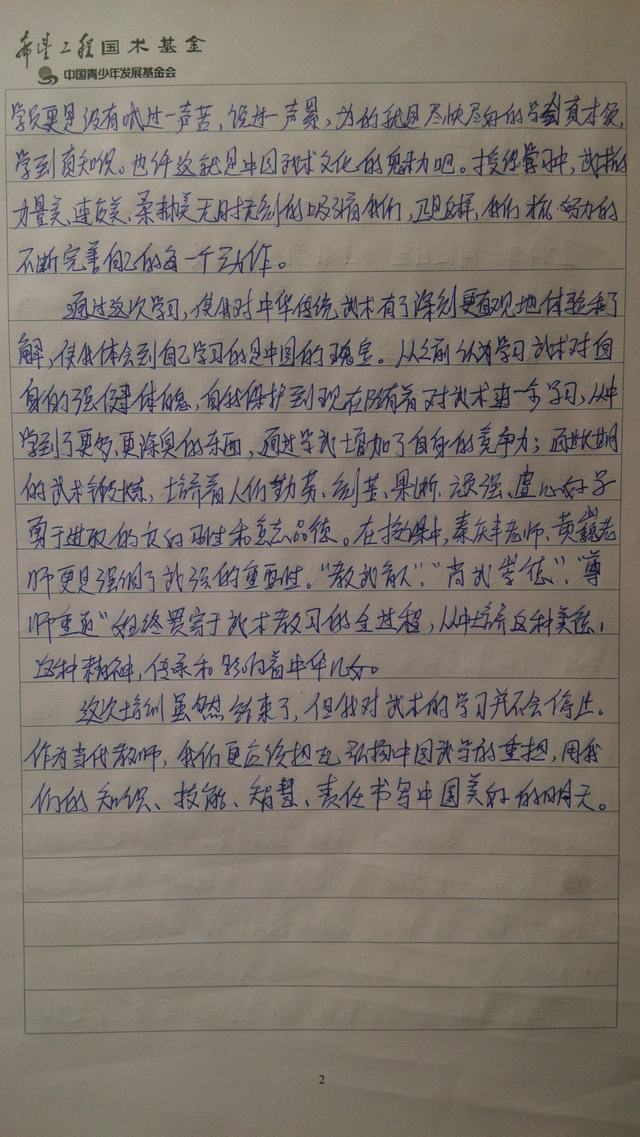 希望工程国术基金
中国青少年发展基金会
学员更是没有喊过一声苦，说过一声累，为的就是尽快尽好的学到真本领，
学到真知识。也许这就是中国武术文化的魅力吧。在授课学习中，武术的
力量美、速度美、柔韧美无时无刻的吸引着我们，正是这样，我们才努力的
不断完善自己的每一个动作。
通过这次学习，使我对中华传统武术有了深刻更直观地体验和了
解，使我体会到自己学习的是中国的瑰宝。从之前认为学习武术对自
身的强健体魄，自我保护到现在随着对武术进一步学习，从中
学到了更多，更深奥的东西，通过学武增加了自身的竞争力；通过长期
的武术锻炼，培养着人们勤劳、刻苦、果断、顽强、虚心好学
勇于进取的良好习性和意志品德。在授课中，秦庆丰老师、黄巍老
师更是强调了武德的重要性。“教武育人”、“尚武崇德”、“尊
师重道”始终贯穿于武术教习的全过程，从中培养这种美德，
这种精神，传承和影响着中华儿女。
这次培训虽然结束了，但我对武术的学习并不会停止。
作为当代教师，我们更应该担起弘扬中国武学的重担，用我
们的知识、技能、智慧、责任书写中国美好的明天。
2